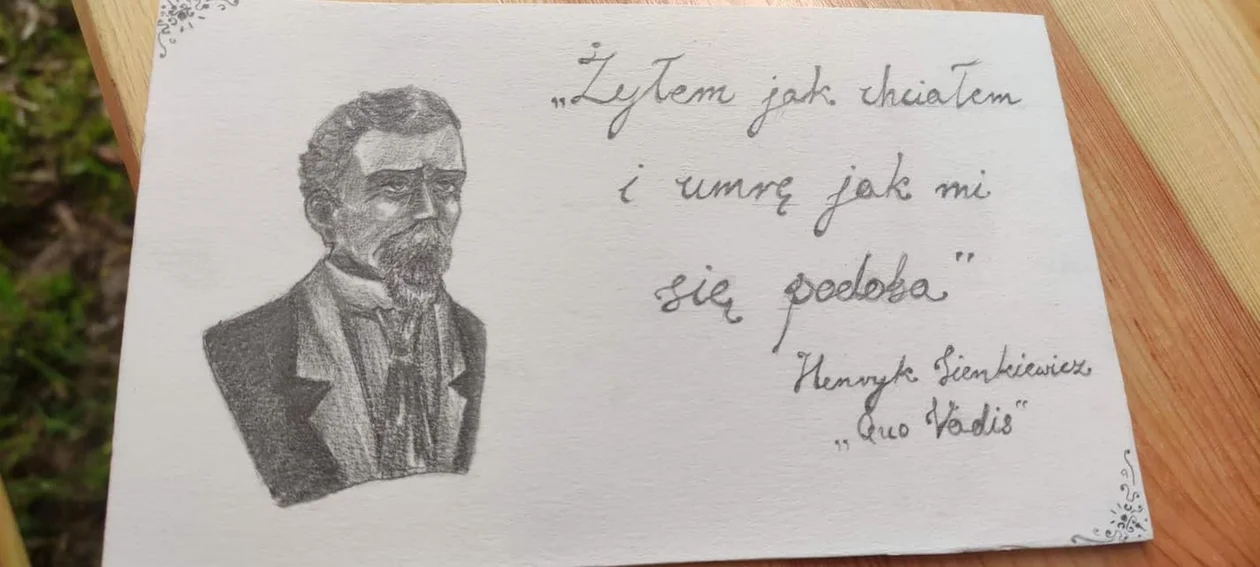 „Żyłem jak chciałem
i umrę jak mi
się podoba"
Henryk Sienkiewicz
„Quo Vadis"